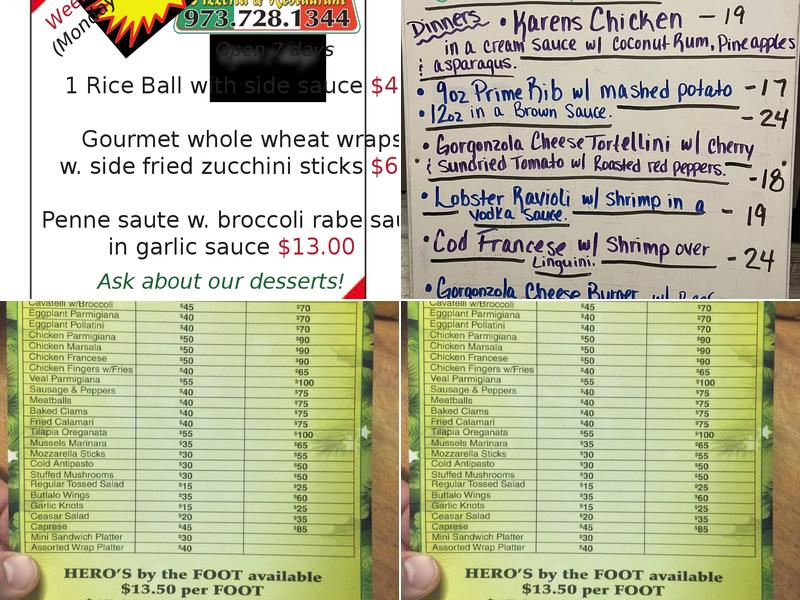 Pizzeria & Restaurant
973.728.1344
(Monday
Open 7 days
1 Rice Ball with side sauce $4
Gourmet whole wheat wraps
w. side fried zucchini sticks $6
Penne saute w. broccoli rabe sau
in garlic sauce $13.00
Ask about our desserts!
Dinners • Karens Chicken - 19
in a cream sauce w/ Coconut Rum, Pineapples
& asparagus.
• 9oz Prime Rib w/ mashed potato - 17
• 12oz in a Brown Sauce. - 24
• Gorgonzola Cheese Tortellini w/ Cherry
& Sundried Tomato w/ Roasted red peppers. - 18
• Lobster Ravioli w/ shrimp in a
vodka sauce. - 19
• Cod Francese w/ Shrimp over
Linguini. - 24
• Gorgonzola Cheese Burger w/
Cavatelli w/Broccoli $45 $70
Eggplant Parmigiana $40 $70
Eggplant Pollatini $40 $70
Chicken Parmigiana $50 $90
Chicken Marsala $50 $90
Chicken Francese $50 $90
Chicken Fingers w/Fries $40 $65
Veal Parmigiana $55 $100
Sausage & Peppers $40 $75
Meatballs $40 $75
Baked Clams $40 $75
Fried Calamari $40 $75
Tilapia Oreganata $55 $100
Mussels Marinara $35 $65
Mozzarella Sticks $30 $55
Cold Antipasto $30 $50
Stuffed Mushrooms $30 $50
Regular Tossed Salad $15 $25
Buffalo Wings $35 $60
Garlic Knots $15 $25
Ceasar Salad $20 $35
Caprese $45 $85
Mini Sandwich Platter $30
Assorted Wrap Platter $40
HERO'S by the FOOT available
$13.50 per FOOT
Cavatelli w/Broccoli $45 $70
Eggplant Parmigiana $40 $70
Eggplant Pollatini $40 $70
Chicken Parmigiana $50 $90
Chicken Marsala $50 $90
Chicken Francese $50 $90
Chicken Fingers w/Fries $40 $65
Veal Parmigiana $55 $100
Sausage & Peppers $40 $75
Meatballs $40 $75
Baked Clams $40 $75
Fried Calamari $40 $75
Tilapia Oreganata $55 $100
Mussels Marinara $35 $65
Mozzarella Sticks $30 $55
Cold Antipasto $30 $50
Stuffed Mushrooms $30 $50
Regular Tossed Salad $15 $25
Buffalo Wings $35 $60
Garlic Knots $15 $25
Ceasar Salad $20 $35
Caprese $45 $85
Mini Sandwich Platter $30
Assorted Wrap Platter $40
HERO'S by the FOOT available
$13.50 per FOOT